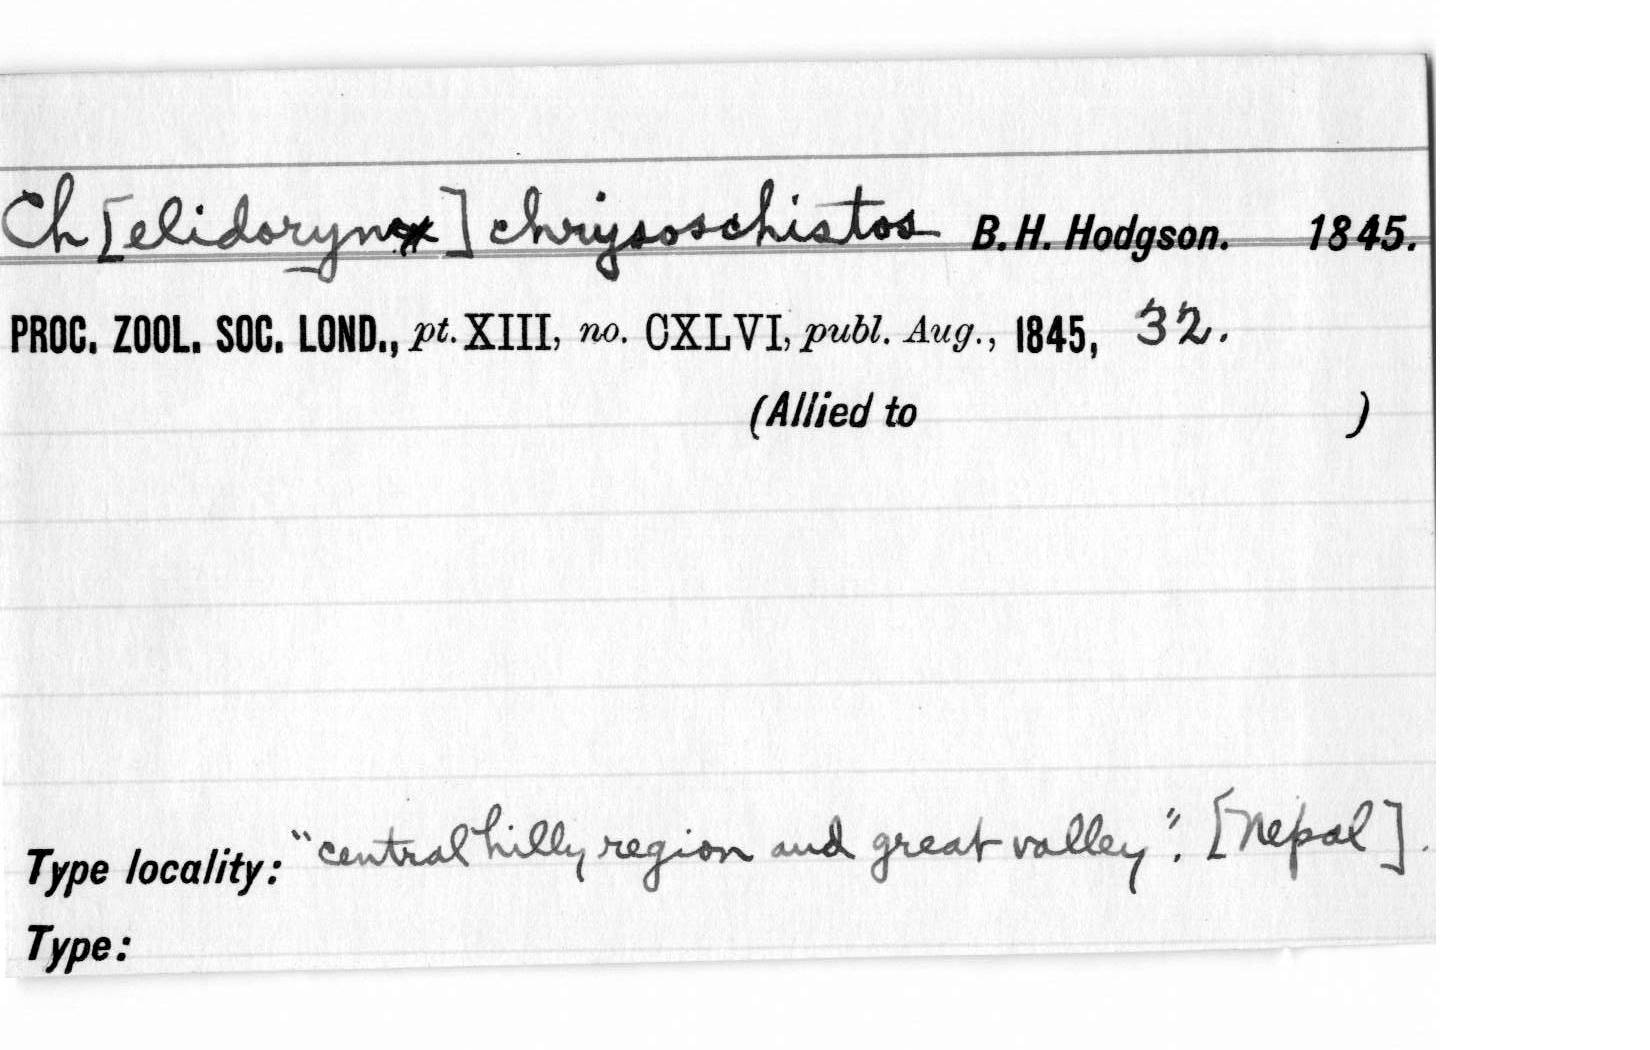 Ch[elidorynx] chrysoschistos B. H. Hodgson. 1845.
PROC. ZOOL. SOC. LOND., pt. XIII, no. CXLVI, publ. Aug., 1845, 32.
(Allied to )
Type locality: "central hilly region and great valley". [Nepal].
Type: